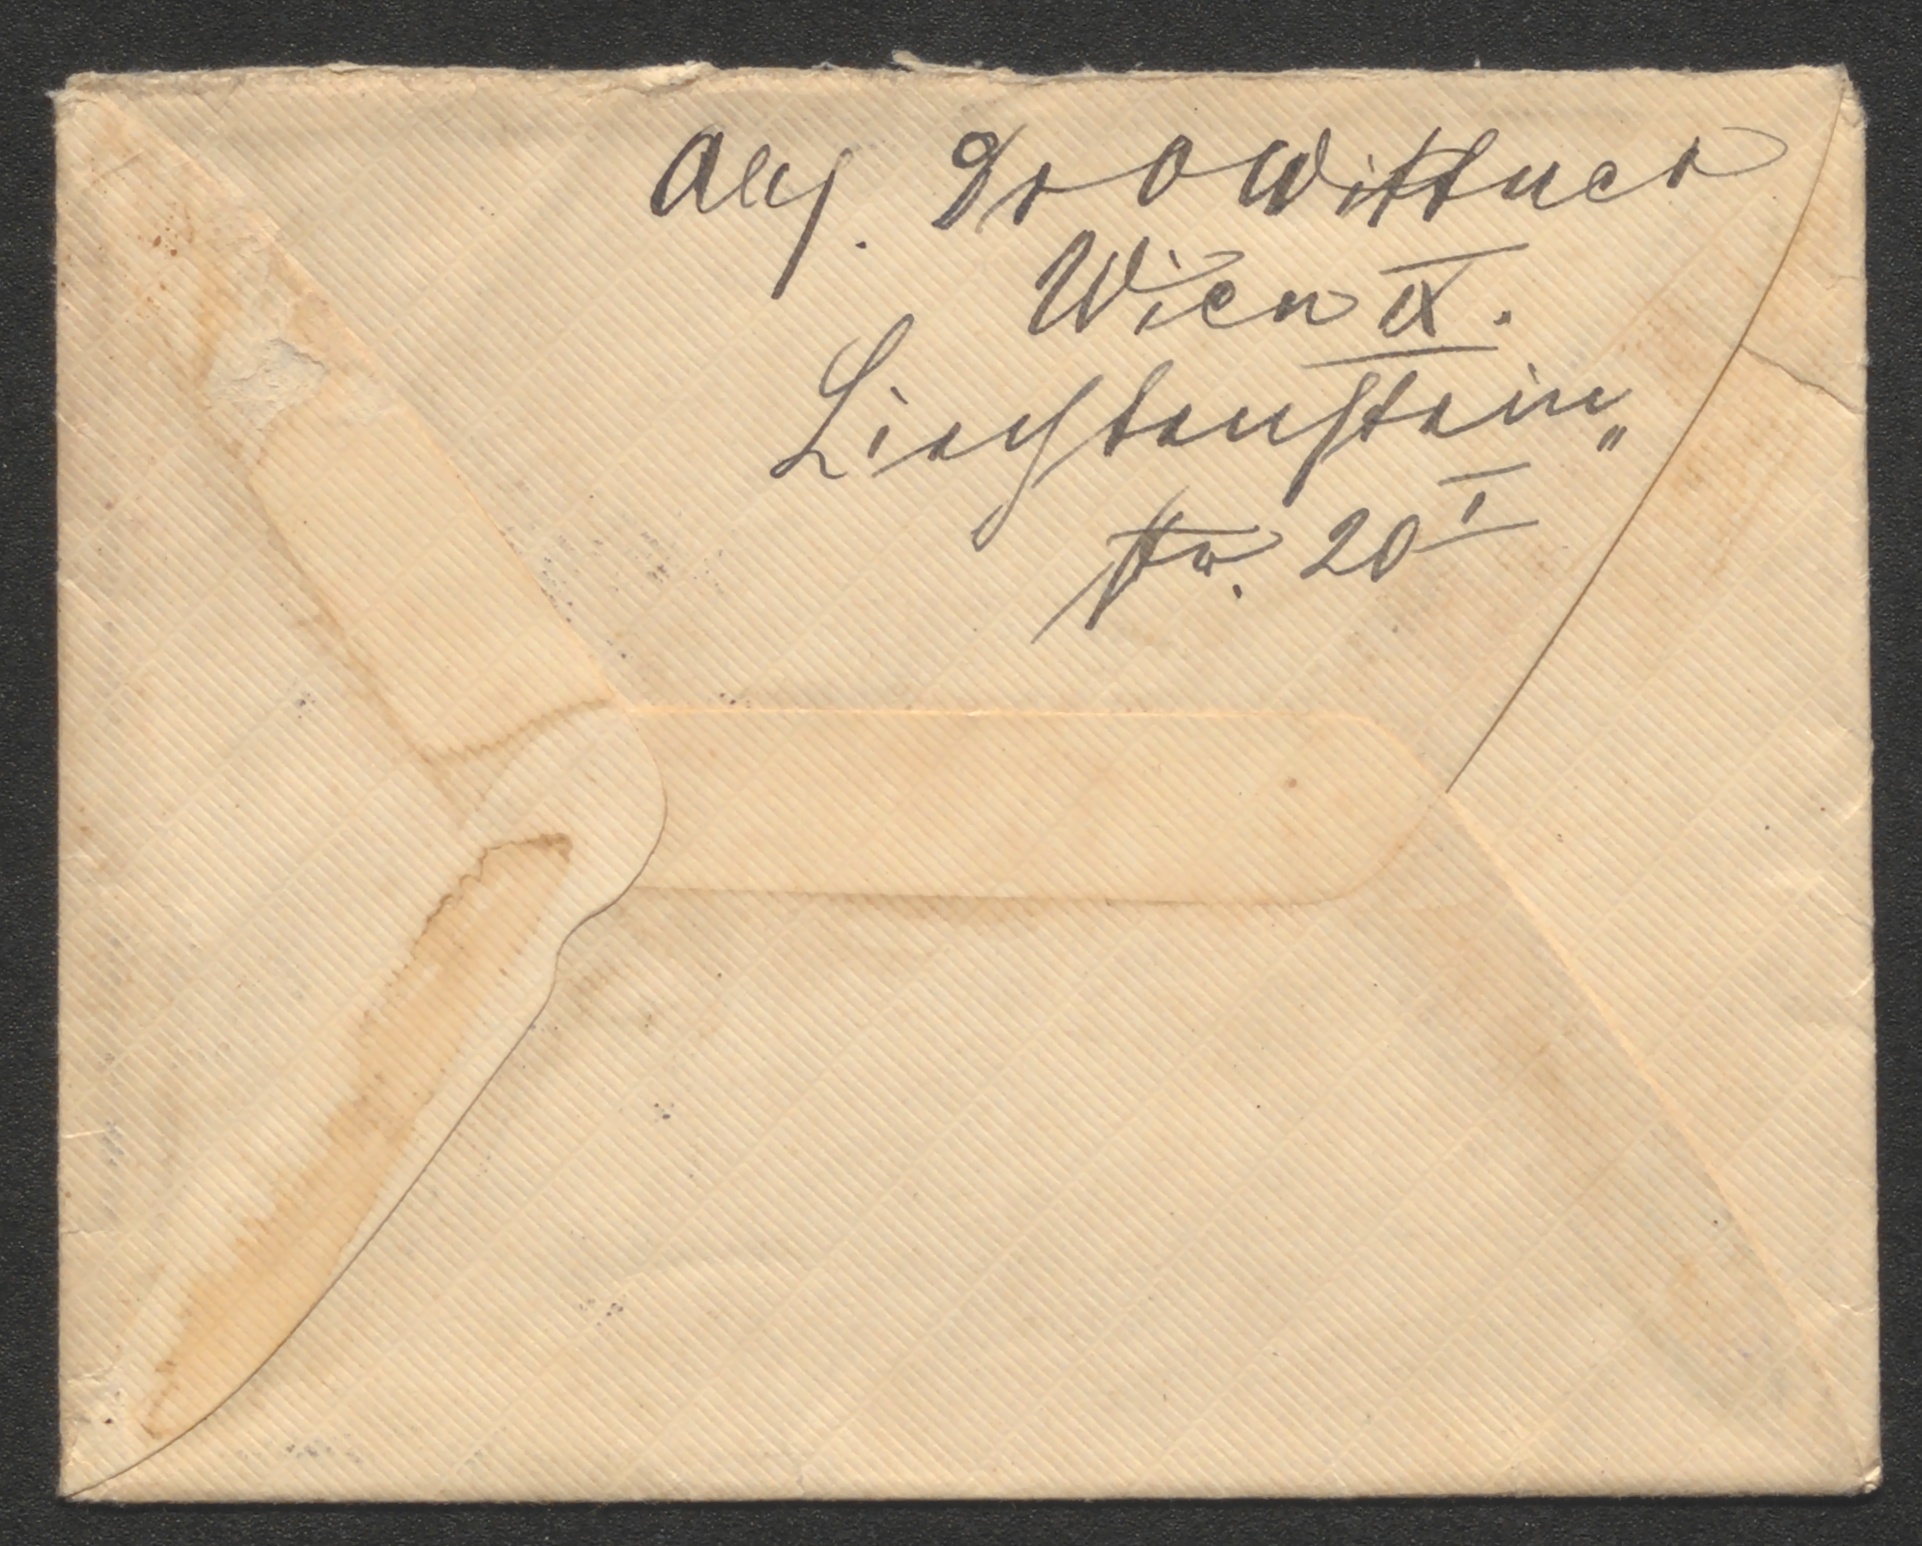 Abs. Dr O Wittner
Wien IX.
Liechtenstein„
str. 20 I